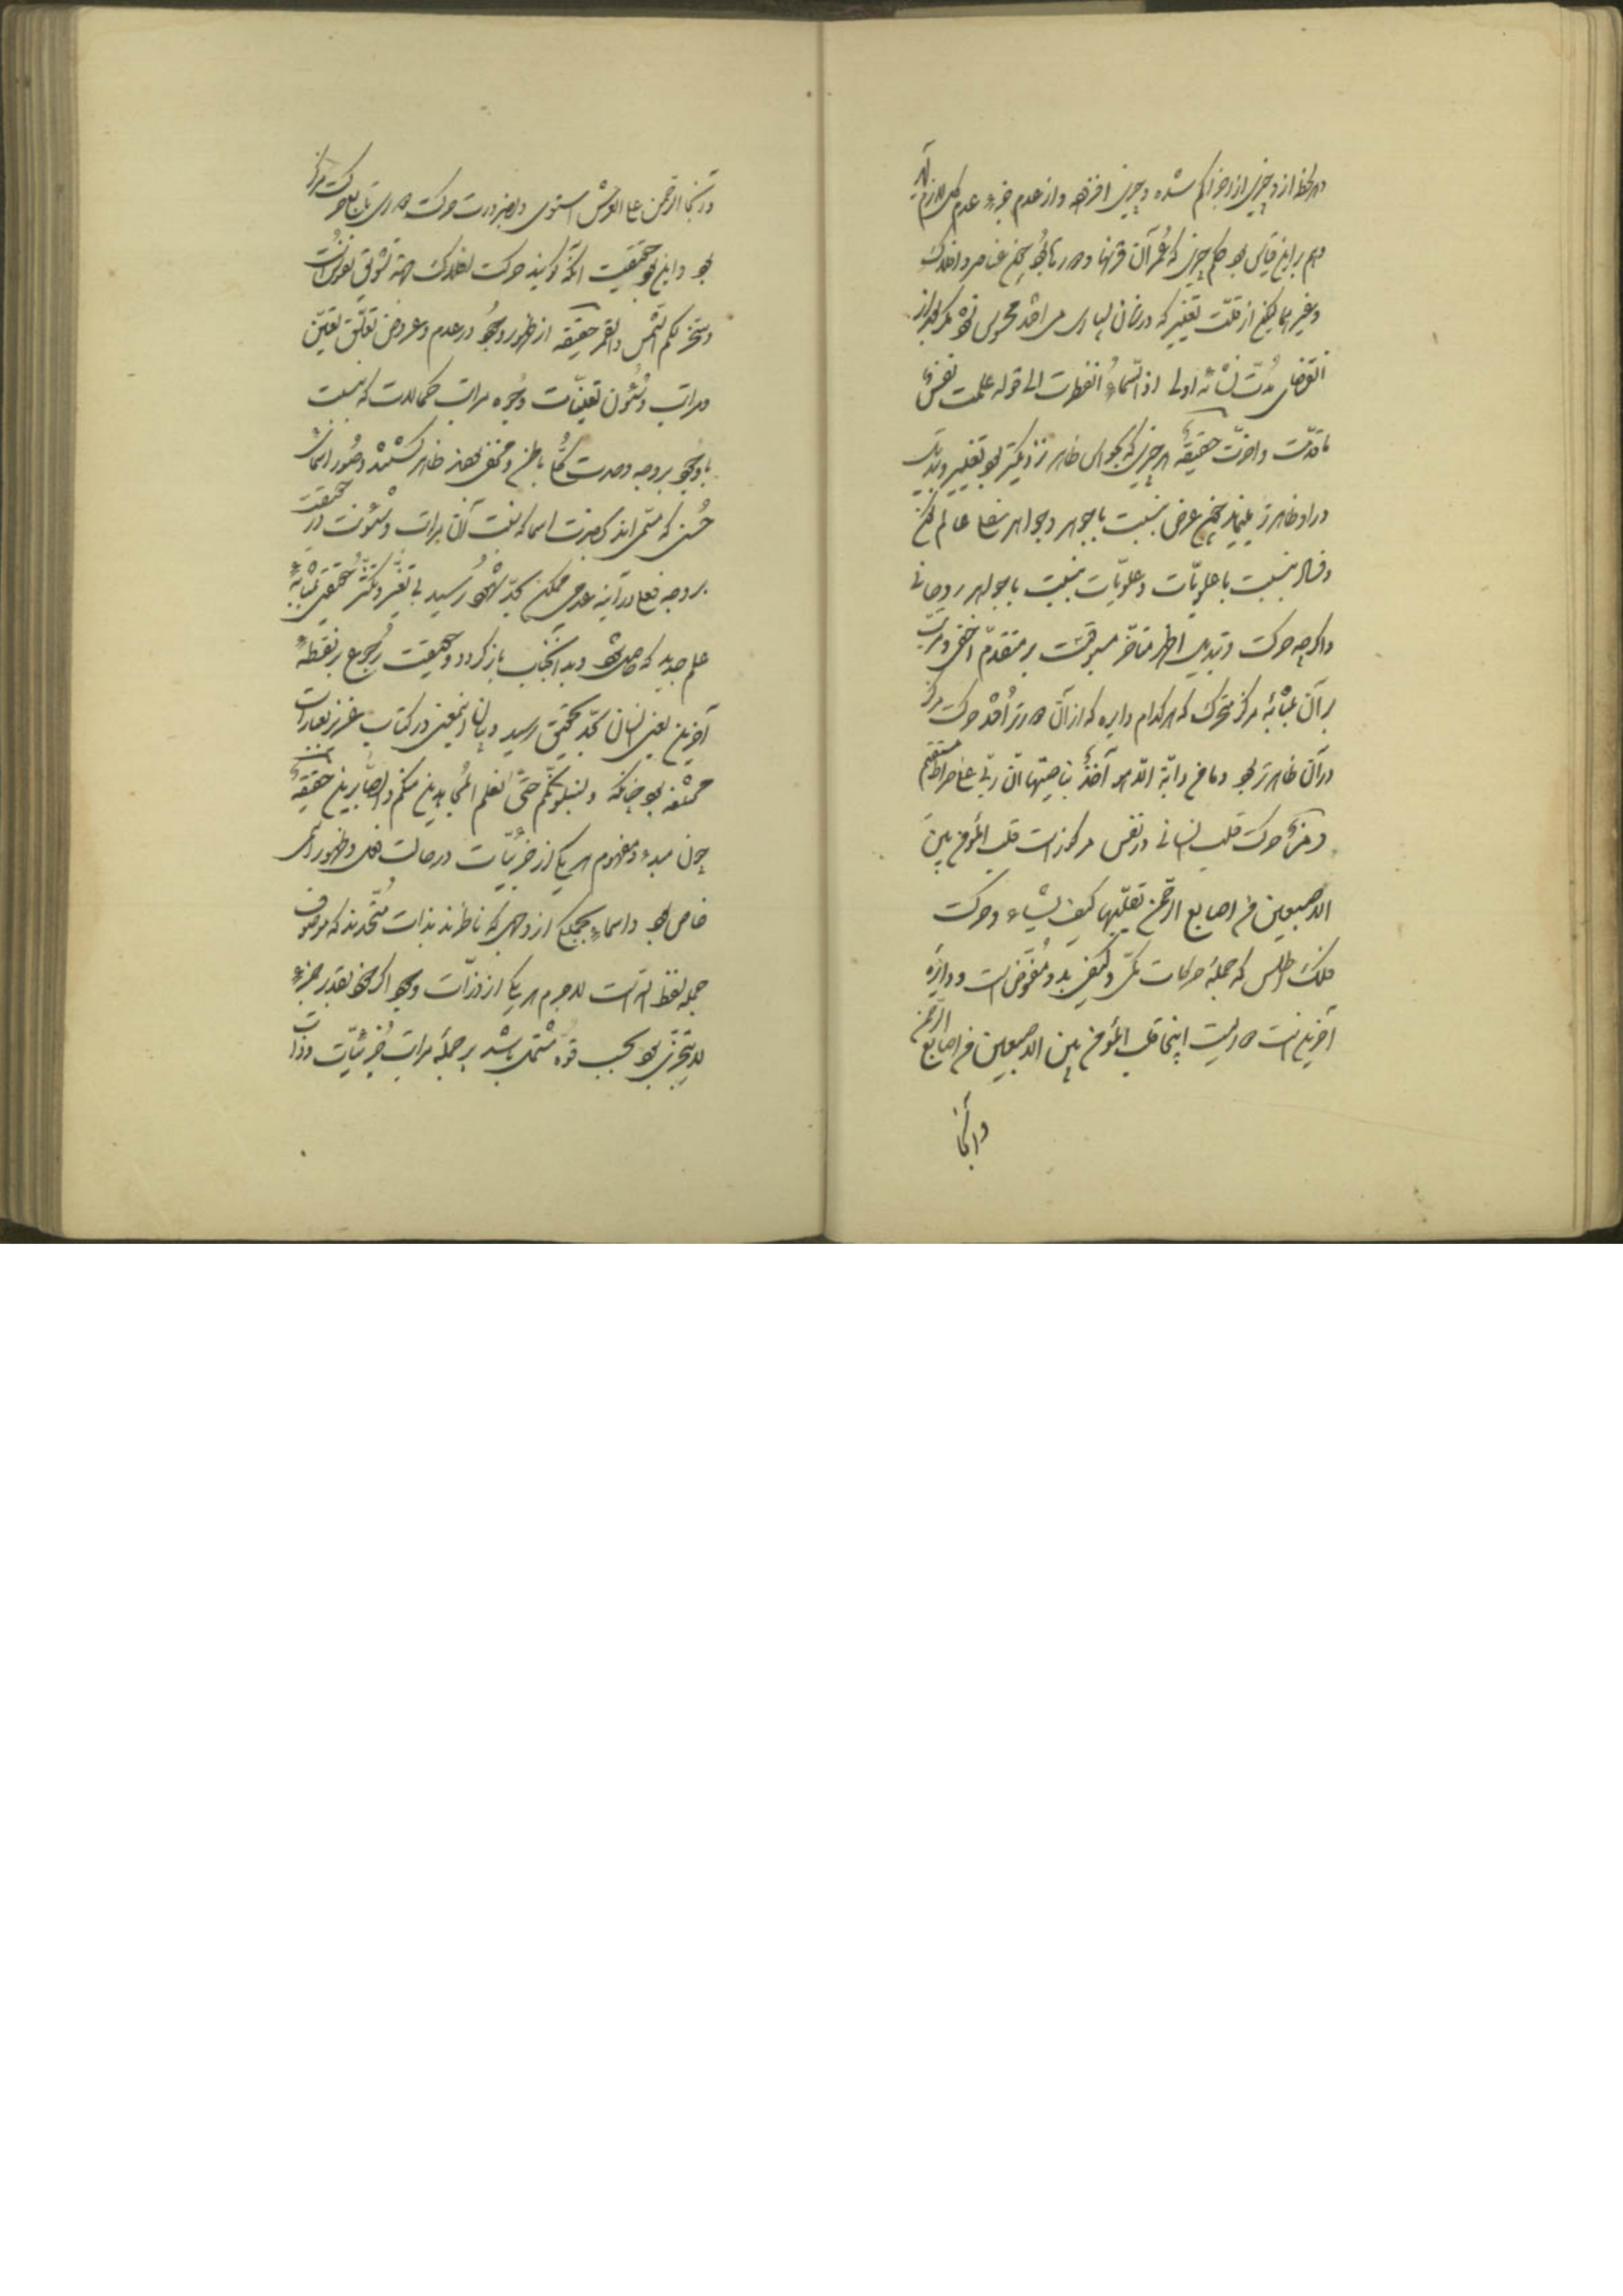 هر لحظه از و چیزی از اجزا کم شده و چیزی افزوده و از عدم جزء عدم کل لازم آید
و هم برین قیاس بود حکم چیزی که عمر آن قرنها و دورها بود چون عناصر و افلاک
و غیرهما لیکن از قلت تغییر که در زمان بسیاری می‌افتد محسوس نشود مگر بعد از
انقضای مدت نشأه اولی اذا السماء انفطرت الی قوله علمت نفس
ما قدمت و اخرت حقیقة هر چیزی که بحواس ظاهر نزدیکتر بود تغییر و تبدیل
در او ظاهرتر نماید چون عرض نسبت با جوهر و جواهر سفلی عالم کون
و فساد بنسبت با علویات و علویات بنسبت با جواهر روحانی
و اگرچه حرکت و تبدیل اظهر متأخر مسبوقست بر متقدم اخفی و مرتب
بر آن بمثابه مرکز متحرک که هر کدام دایره که از آن دورتر افتد حرکت مرکز
در آن ظاهرتر بود و ما من دابة الا هو آخذ بناصیتها ان ربی علی صراط مستقیم
حرکت قلب انسانی در نفس مرکوز است قلب المؤمن بین
الاصبعین من اصابع الرحمن یقلبها کیف یشاء و حرکت
فلک اطلس که جمله حرکات کمی و کیفی بدو مفوض است و دایره
آخرین است اینجا قلب المؤمن بین الاصبعین من اصابع الرحمن
و آنجا
و آنجا الرحمن علی العرش استوی و بضرورت حرکت دوری تابع حرکت مرکز
بود و این بود حقیقت آنکه گویند حرکت افلاک جهة تشویق نفوس است
و سخر لکم الشمس و القمر حقیقة از ظهور وجود در عدم و عروض تعلق تعین
مراتب و شئون تعینات وجوه مراتب کمالات که نسبت
با وجود بر وجه وحدت کلی باطن و مخفی بودند ظاهر گشتند و صور اسماء
حسنی که مسمی‌اند کثرت اسما که نعت آن مراتب و شئونست در حقیقت
بر وجه فعلی در آینه عدمی ممکن بحد شهود رسید بی تغیر و تکثر حقیقی بمثابه
علم جدید که حاصل شود و بدانجناب باز گردد و حقیقت رجوع بر نقطه
آخرین یعنی انسان بحد تحقیق رسید و بیان این معنی در کتاب عزیز بعبارات
بود چنانکه و لنبلونکم حتی نعلم المجاهدین منکم و الصابرین حقیقة
چون مبدء و مفهوم هر یکی از جزئیات در حالت فعل و ظهور اسمی
خاص بود و اسماء جملگی از وجهی که ناظرند بذات متحدند که موصوف
جمله لفظ الله است لاجرم هر یکی از ذرات وجود اگر خود بقدر جزء
لا یتجزی بود بحسب قوه مشتمل باشد بر جمله مراتب جزئیات و ذات